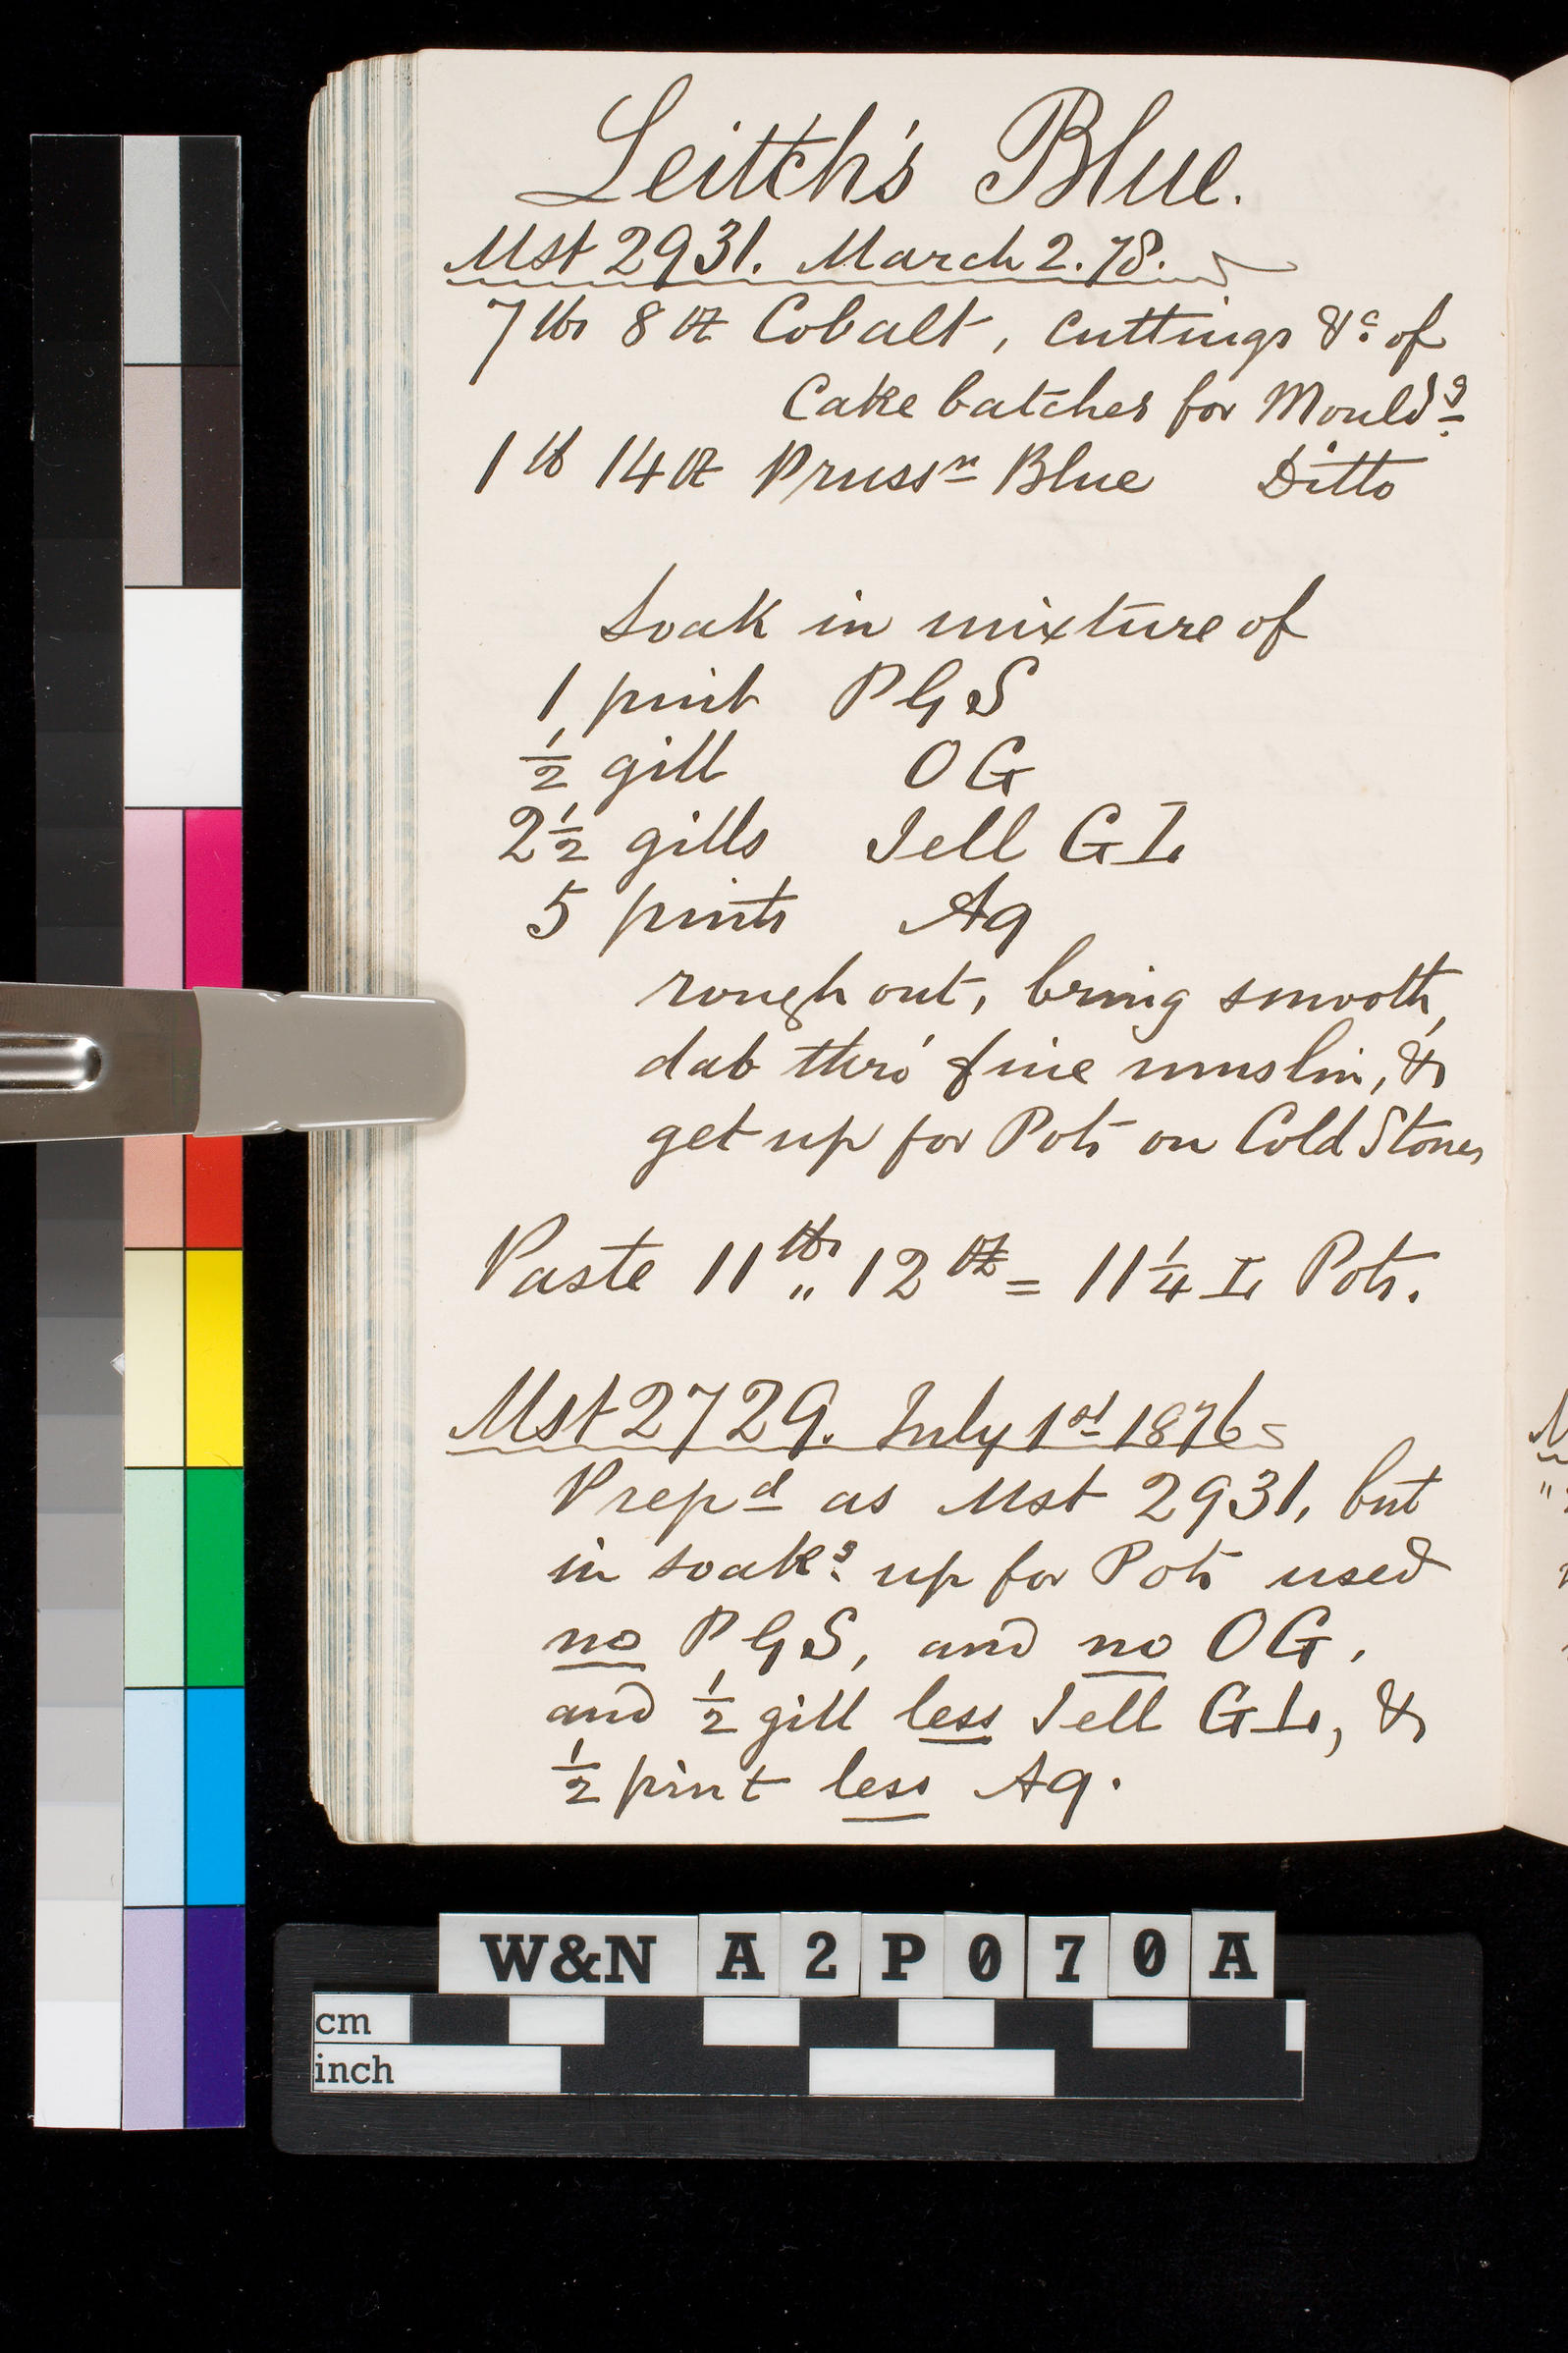 Leitch's Blue.
Mst 2931. March 2. 78.
7 lbs 8 oz Cobalt, cuttings &c of
Cake batches for Mouldg
1 lb 14 oz Prussn Blue Ditto
Soak in mixture of
1 pint PGS
½ gill OG
2½ gills Jell GL
5 pints Aq
rough out, bring smooth,
dab thro' fine muslin, &
get up for Pots on Cold Stones
Paste 11 lbs „ 12 oz = 11¼ L Pots.
Mst 2729. July 1st 1876
Prepd as Mst 2931, but
in soakg up for Pots used
no PGS, and no OG,
and ½ gill less Jell GL, &
½ pint less Aq.
W&N A2P070A
cm
inch